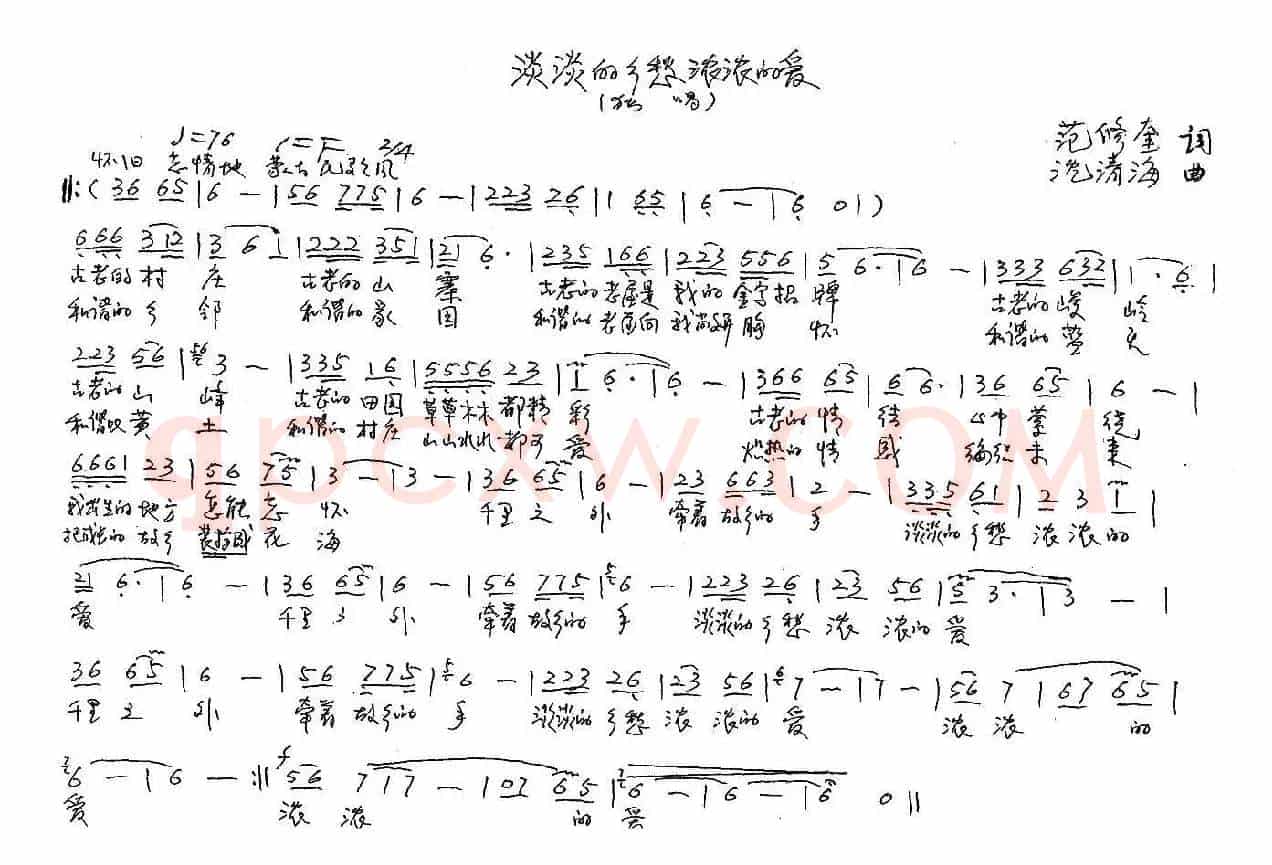 淡淡的乡愁浓浓的爱
(独 唱)
♩=76 1=F 2/4
怀旧 忘情地 蒙古民谣风
范修奎 词
沈清海 曲
‖:( 36 65 | 6 - | 56 775 | 6 - | 223 26 | 1 65 | 6 - | 6 0 | )
666 312 | 3 6 1 | 222 351 | 21 6· | 235 166 | 223 556 | 5 6· | 6 - | 333 632 | 1· 6 |
古老的村 庄 古老的山 寨 古老的老屋是 我的 古老的峻 岭
和谐的乡 邻 和谐的家 园 和谐的老屋向我 胸 怀 和谐的
223 56 | 3 - | 335 16 | 5556 23 | 1 6· | 6 - | 366 65 | 6 6· | 36 65 | 6 - |
古老的山 峰 古老的田园 草草木木都精 彩 古老的情 结 心中萦 绕
和谐 黄 土 和谐的村庄 山山水水都可 爱 炽热的情 感 编织未 来
6661 23 | 56 75 | 3 - | 3 - | 36 65 | 6 - | 23 663 | 2 - | 335 61 | 2 3 1 |
我 生的地方 怎能忘 怀 千里之 外 牵着故乡的 手 淡淡的乡愁 浓 浓的
的故乡 装扮成花 海
21 6· | 6 - | 36 65 | 6 - | 56 775 | 6 - | 223 26 | 23 56 | 5 3· | 3 - |
爱 千里之 外 牵着故乡的 手 淡淡的乡愁 浓 浓的 爱
36 65 | 6 - | 56 775 | 6 - | 223 26 | 23 56 | 7 - | 7 - | 56 7 | 67 65 |
千里之 外 牵着故乡的 手 淡淡的乡愁 浓 浓的 爱 浓 浓 的
6 - | 6 - :‖ 56 7 | 7 - | 07 65 | 6 - | 6 - | 6 0 ‖
爱 浓 浓 的 爱
gpcxw.com